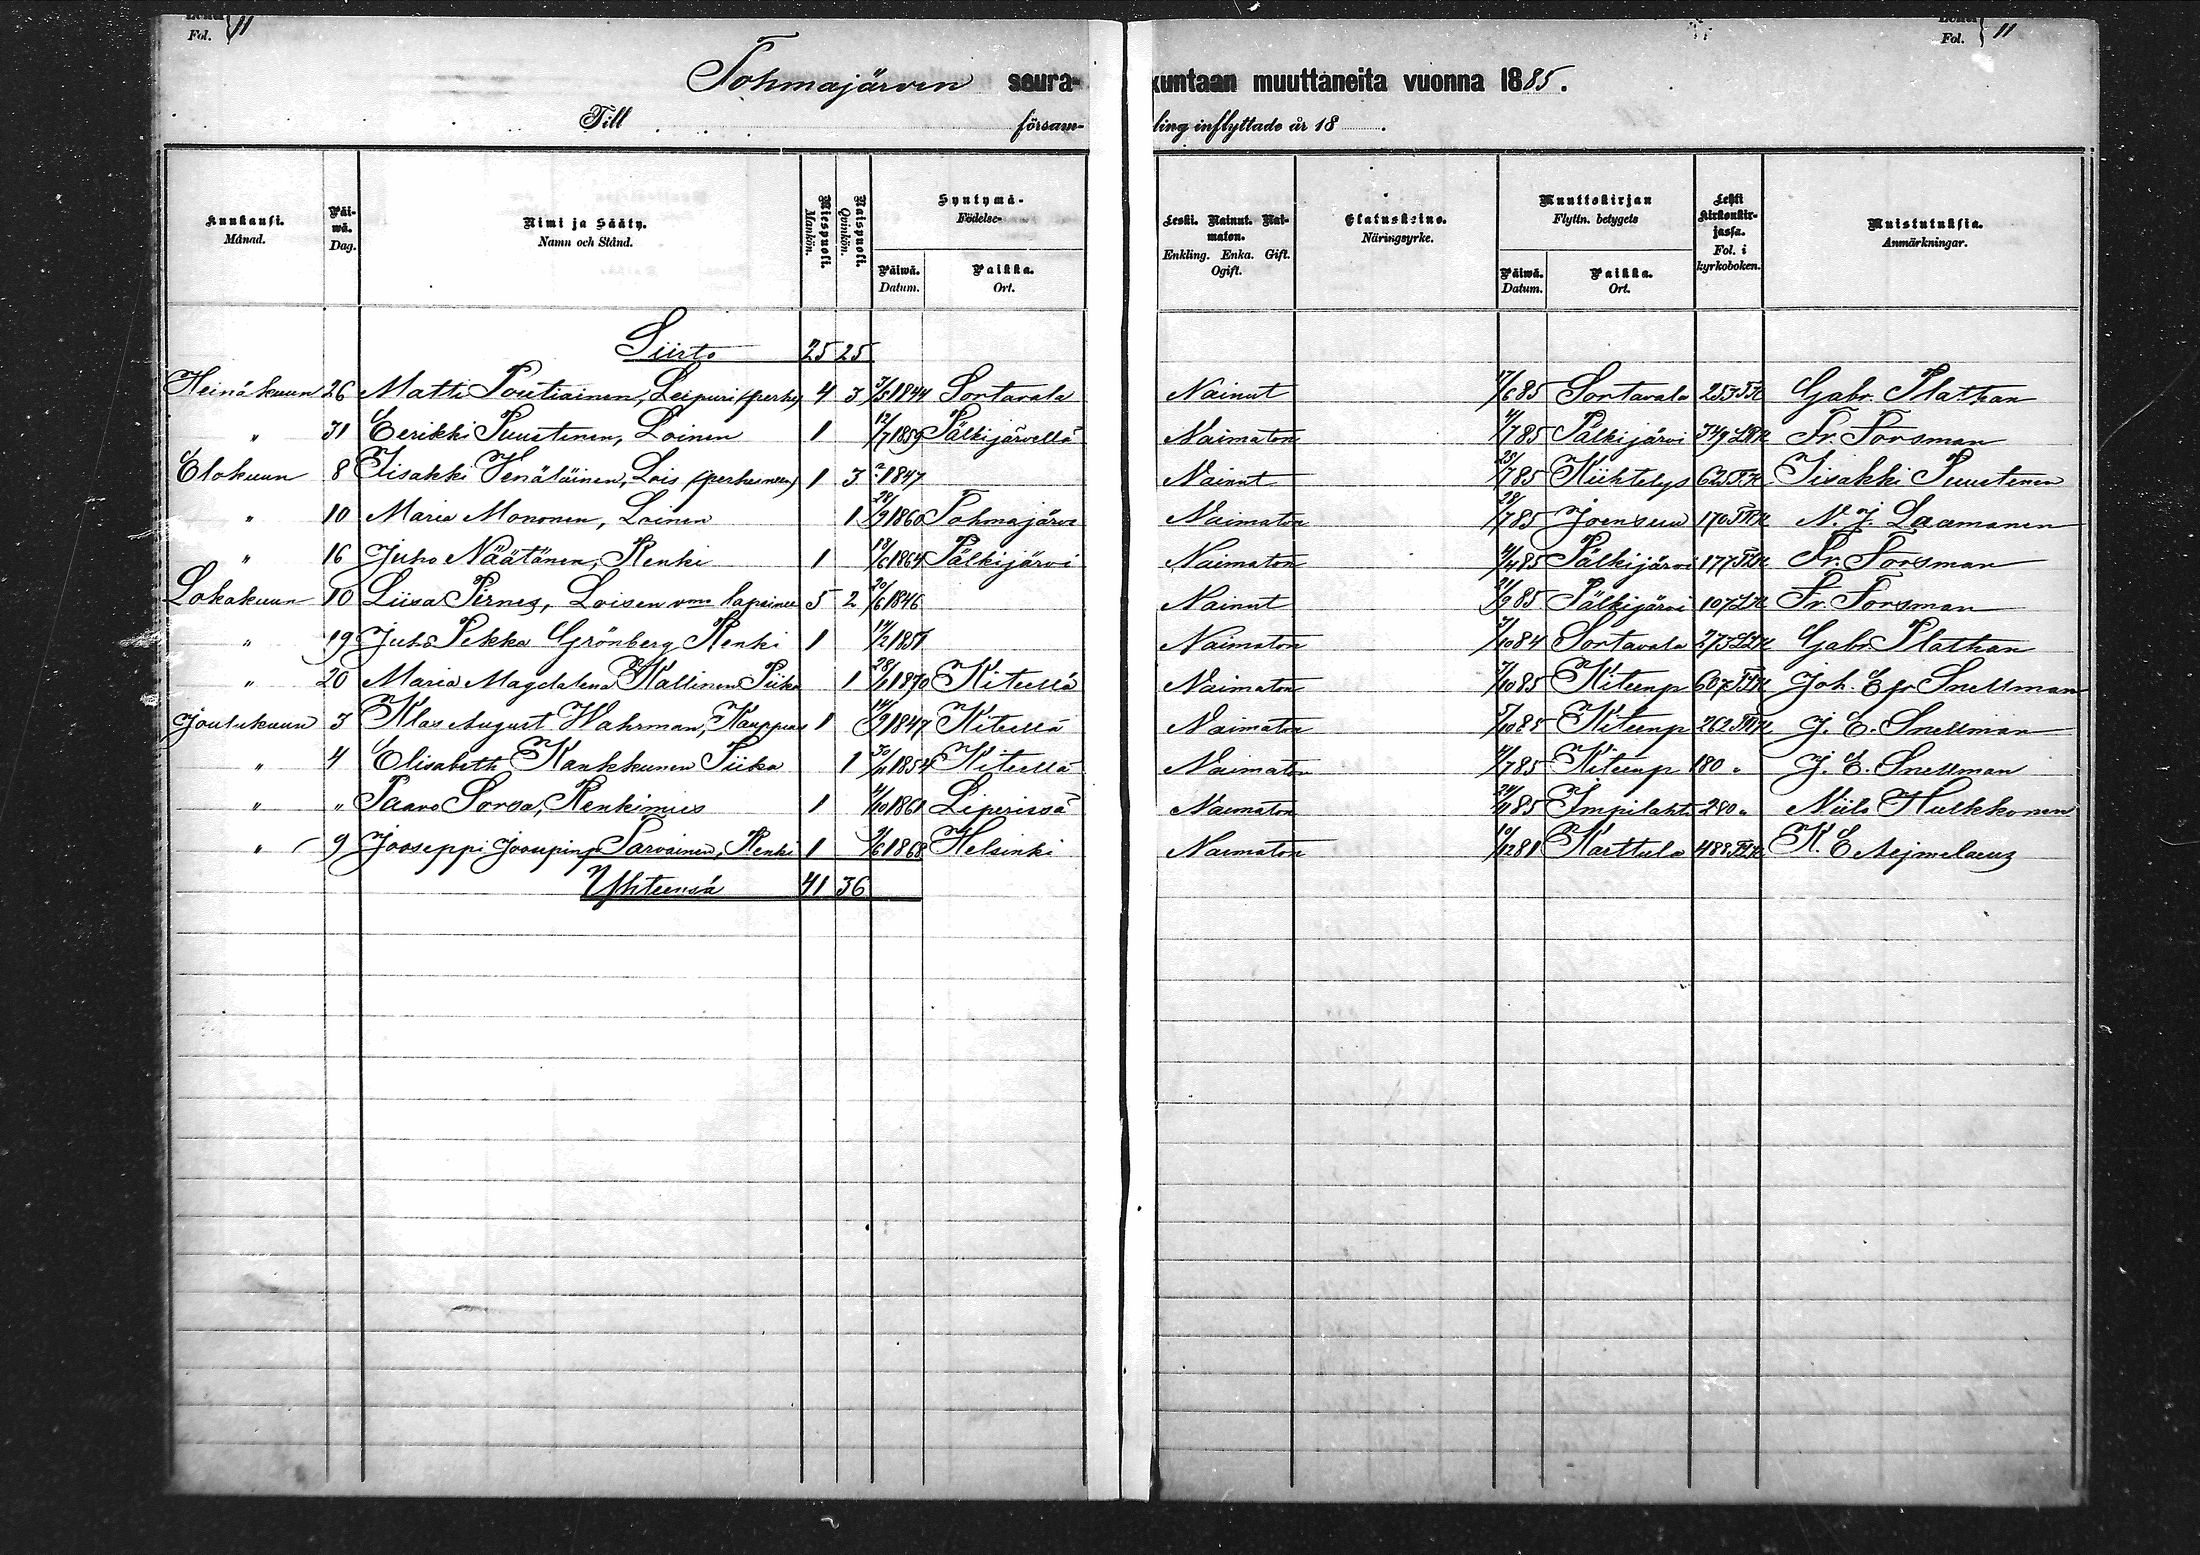 Fol. 11
Fol. 11
Tohmajärven seura- kuntaan muuttaneita vuonna 1885.
Till försam- ling inflyttade år 18 .
Kuukausi. Månad. Päi-wä. Dag. Nimi ja Sääty. Namn och Stånd. Miespuoli. Mankön. Naispuoli. Qvinkön. Syntymä- Födelse- Päiwä. Datum. Paikka. Ort. Leski. Nainut. Nai-maton. Enkling. Enka. Gift. Ogift. Elatuskeino. Näringsyrke. Muuttokirjan Flyttn. betygets Päiwä. Datum. Paikka. Ort. Lehti Kirkonkir-jassa. Fol. i kyrkoboken. Muistutuksia. Anmärkningar.
Siirto 25 25
Heinäkuun 26 Matti Poutiainen, Leipuri (perhe) 4 3 3/5 1844 Sortavala Nainut 17/6 85 Sortavala 253 Gabr. Plathan
" 31 Eerikki Puustinen, Loinen 1 12/7 1859 Pälkijärvellä Naimaton 4/7 85 Pälkijärvi 349 Fr. Forsman
Elokuun 8 Iisakki Venäläinen, Lois (perheineen) 1 3 1847 Nainut 25/7 85 Kiihtelys 625 Iisakki Puustinen
" 10 Maria Mononen, Loinen 1 28/9 1860 Tohmajärvi Naimaton 28/7 85 Joensuu 170 N. J. Laamanen
" 16 Juho Näätänen, Renki 1 18/6 1864 Pälkijärvi Naimaton 4/4 85 Pälkijärvi 177 Fr. Forsman
Lokakuun 10 Liisa Pirnes, Loisen vmo lapsinee 5 2 20/6 1846 Nainut 21/9 85 Pälkijärvi 107 Fr. Forsman
" 19 Juho Pekka Grönberg Renki 1 14/2 1851 Naimaton 7/10 84 Sortavala 273 Gabr. Plathan
" 20 Maria Magdalena Kallinen Piika 1 28/11 1870 Kiteellä Naimaton 7/10 85 Kiteenp 607 Joh. Ejr Snellman
Joulukuun 3 Klas August Wahrman, Kauppias 1 14/9 1847 Kiteellä Naimaton 7/10 85 Kiteenp 262 J. E. Snellman
" 4 Elisabeth Kankkunen Piika 1 30/11 1854 Kiteellä Naimaton 4/7 85 Kiteenp 180 " J. E. Snellman
" " Paavo Sorsa, Renkimies 1 4/10 1861 Liperissä Naimaton 24/11 85 Impilahti 280 " Niilo Hulkkonen
" 9 Jooseppi Joosepinp Parviainen, Renki 1 9/6 1868 Helsinki Naimaton 19/12 81 Karttula 488 K. E Aejmelaeus
Yhteensä 41 36